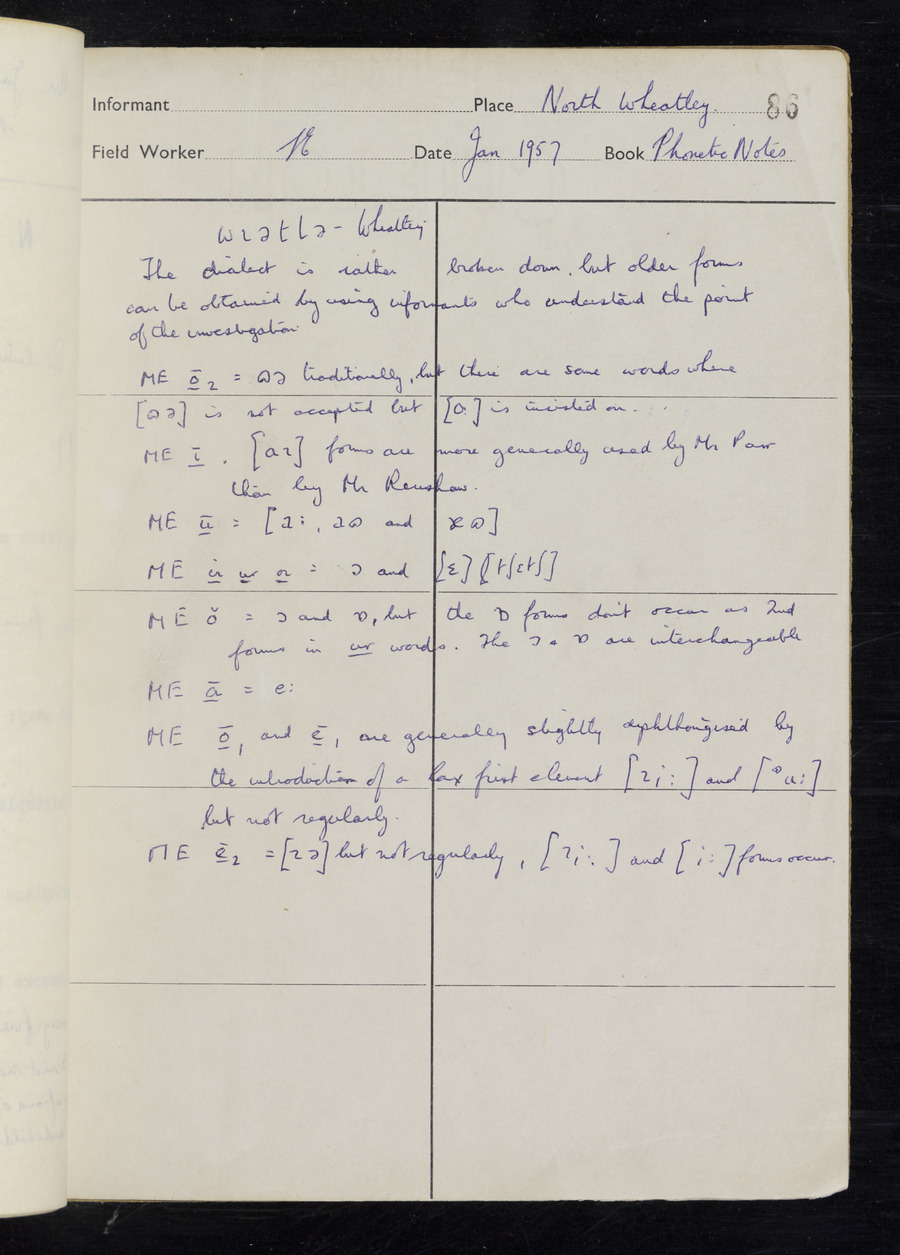 Informant Place North Wheatley. 86
Field Worker SE Date Jan 1957 Book Phonetic Notes
wɩətlə - Wheatley
The dialect is rather broken down, but older forms
can be obtained by using informants who understand the point
of the investigation
ME ō₂ = ɷə traditionally, but there are some words where
[ɷə] is not accepted but [ɔ:] is insisted on.
ME ī . [aɩ] forms are more generally used by Mr Parr
than by Mr Renshaw.
ME ū = [a:, aɷ and ɷ]
ME ir ur or = ɔ and [ɛ] [tʃɛtʃ]
ME ŏ = ɔ and ɒ, but the ɒ forms don't occur as 2nd
forms in ur words. The ɔ & ɒ are interchangeable
ME ā = e:
ME ō₁ and ē₁ are generally slightly diphthongised by
the introduction of a lax first element [ɩi:] and [ɷu:]
but not regularly.
ME ē₂ = [ɩə] but not regularly, [ɩi:] and [i:] forms occur.